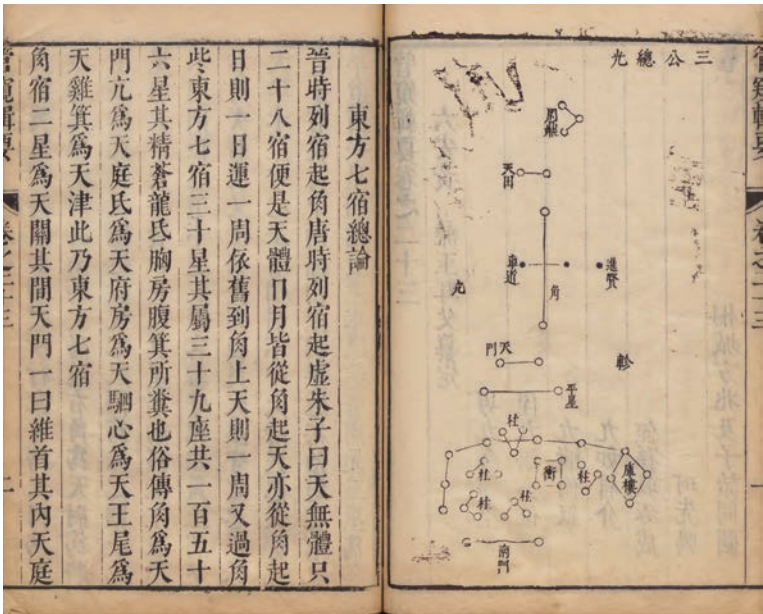 管窺輯要
卷之二十三
一
三公總光
周鼎
天田
進賢
角
車道
亢
軫
天門
平星
柱
庫樓
柱
衡
柱
柱
柱
南門
東方七宿總論
晉時列宿起角唐時列宿起虛朱子曰天無體只
二十八宿便是天體日月皆從角起天亦從角起
日則一日運一周依舊到角上天則一周又過角
些東方七宿三十星其屬三十九座共一百五十
六星其精蒼龍氐胸房腹箕所糞也俗傳角爲天
門亢爲天庭氐爲天府房爲天駟心爲天王尾爲
天雞箕爲天津此乃東方七宿
角宿二星爲天關其間天門一曰維首其內天庭
管窺輯要
卷之二十三
一